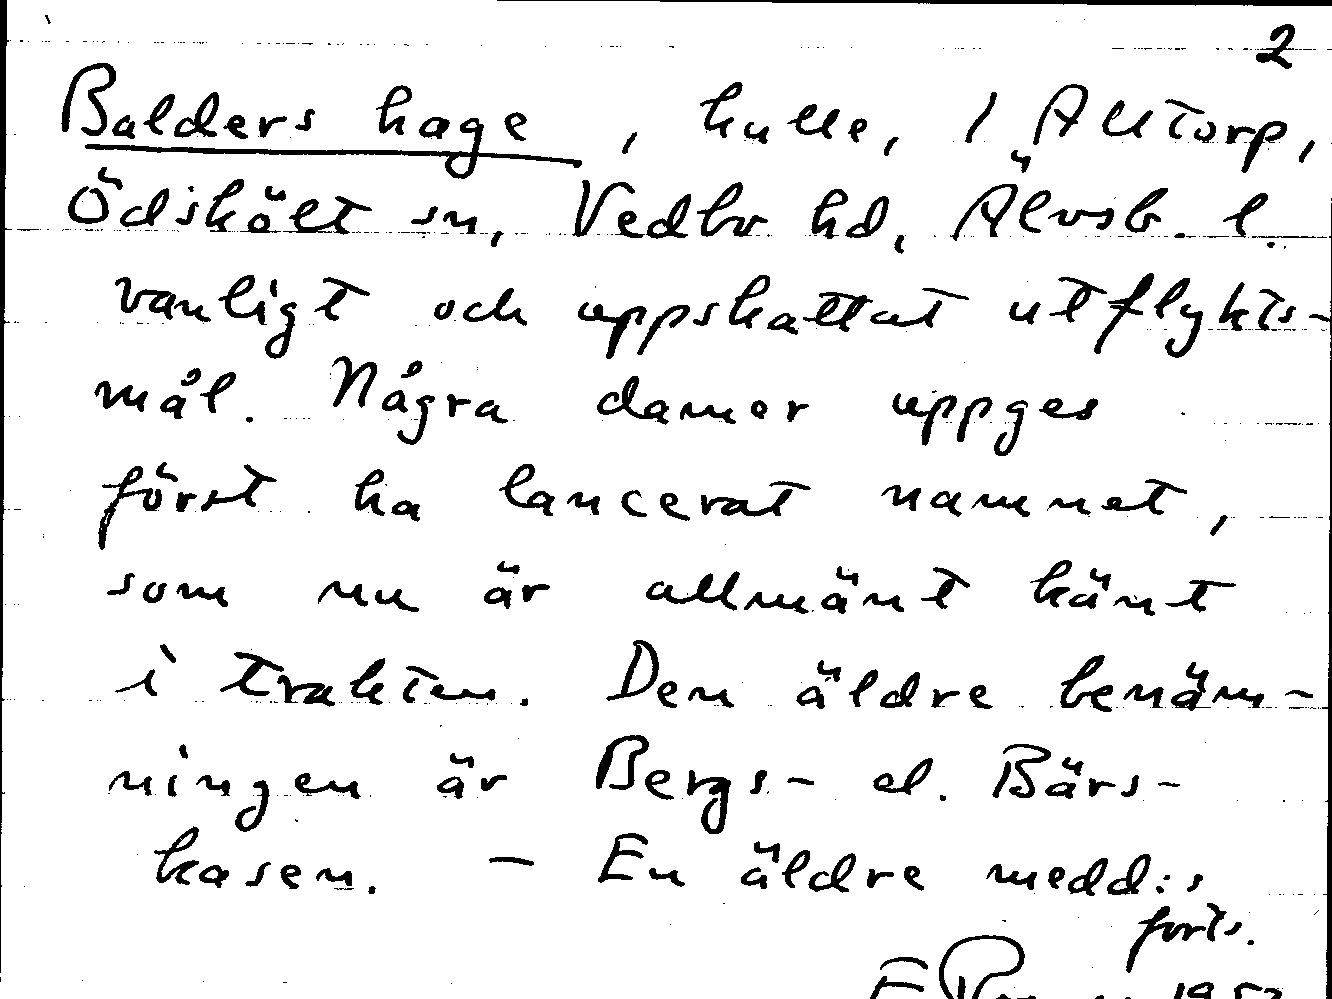 2
Balders hage, kulle, 1 Alltorp,
Ödskölt sn, Vedbo hd, Älvsb. l.
vanligt och uppskattat utflykts-
mål. Några damer uppges
först ha lancerat namnet,
som nu är allmänt känt
i trakten. Den äldre benäm-
ningen är Bergs- el. Bärs-
kasen. - En äldre medd:s
forts.